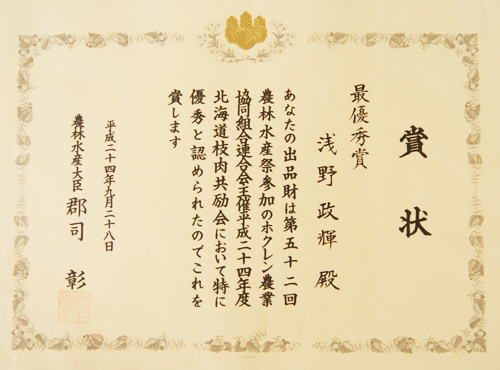 賞状
最優秀賞
浅野政輝 殿
あなたの出品財は第五十二回
農林水産祭参加のホクレン農業
協同組合連合会主催平成二十四年度
北海道枝肉共励会において特に
優秀と認められたのでこれを
賞します
平成二十四年九月二十八日
農林水産大臣 郡司 彰